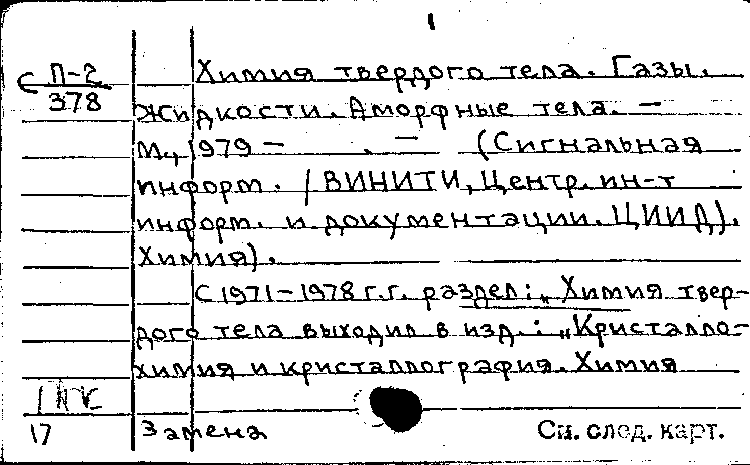 1
С П-2
378
Химия твердого тела. Газы.
жидкости. Аморфные тела. —
М., 1979 — . — (Сигнальная
информ. / ВИНИТИ, Центр. ин-т
информ. и документации. ЦИИД).
Химия).
С 1971-1978 г.г. раздел: „Химия твер-
дого тела выходил в изд.: „Кристалло-
химия и кристаллография. Химия
17 Замена См. след. карт.